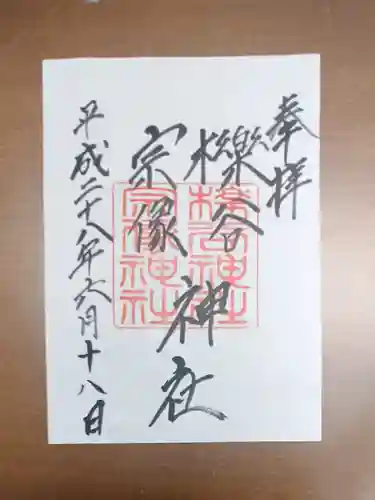 奉拝
櫟谷
宗像
神社
平成二十八年六月十八日
櫟谷神社
宗像神社